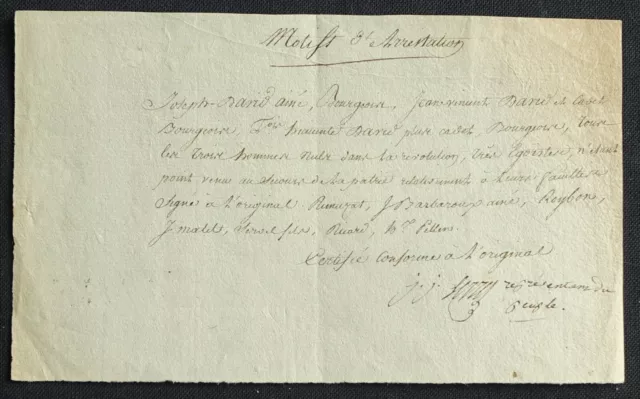 Motifs d'Arrestation
Joseph David ainé, Bourgeois, Jean vincent David et Cadet
Bourgeois, David plus cadet, Bourgeois, tous
les trois hommes nuls dans la revolution, très Egoistes, n'étant
point venu au secours de la patrie relativement à leurs familles
Signé à l'original J. Barbaroux ainé, Reybone,
J. malet, fils, Ricard, Pellen
Certifié Conforme à l'original
j. j. representant du
peuple.